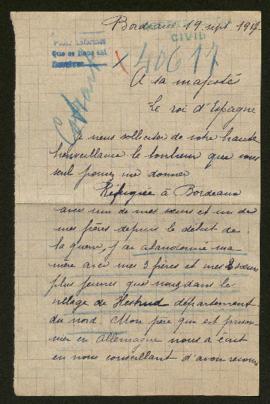 Bordeaux 19 sept 1917
CIVIL
40617
À sa majesté
Le roi d'Espagne
nous solliciter de votre haute
bienveillance le bonheur que vous
seul pouvez me donner
Réfugiée à Bordeaux
avec un de mes sœurs et un de
mes frères depuis le début de
la guerre, j'ai abandonné ma
mère avec mes 3 frères et mes sœurs
plus jeunes que nous dans le
village de département
du nord. Mon père qui est prison-
nier en Allemagne nous a écrit
en nous conseillant d'avoir recours